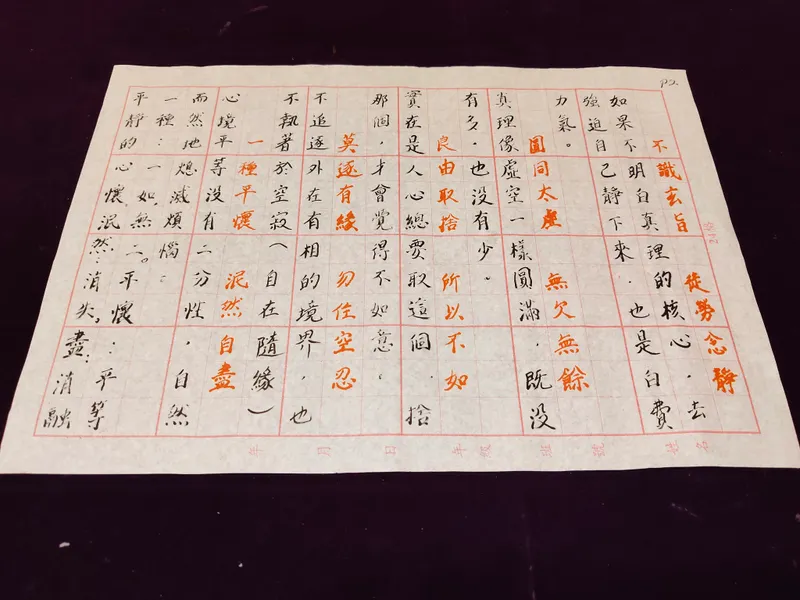 P2.
不識玄旨 徒勞念靜
如果不明白真理的核心，去
強迫自己靜下來，也是白費
力氣。
圓同太虛 無欠無餘
真理像虛空一樣圓滿，既没
有多，也没有少。
良由取捨 所以不如
實在是人心總要取這個，捨
那個，才會覺得不如意。
莫逐有緣 勿住空忍
不追逐外在有相的境界，也
不執著於空寂（自在隨緣）
一種平懷 泯然自盡
心境平等没有二分性，自然
而然地熄滅煩惱：
一種：一如，無二。平懷：平等
平靜的心懷 泯然：消失，盡：消融
年 月 日 年級 班 號 姓名